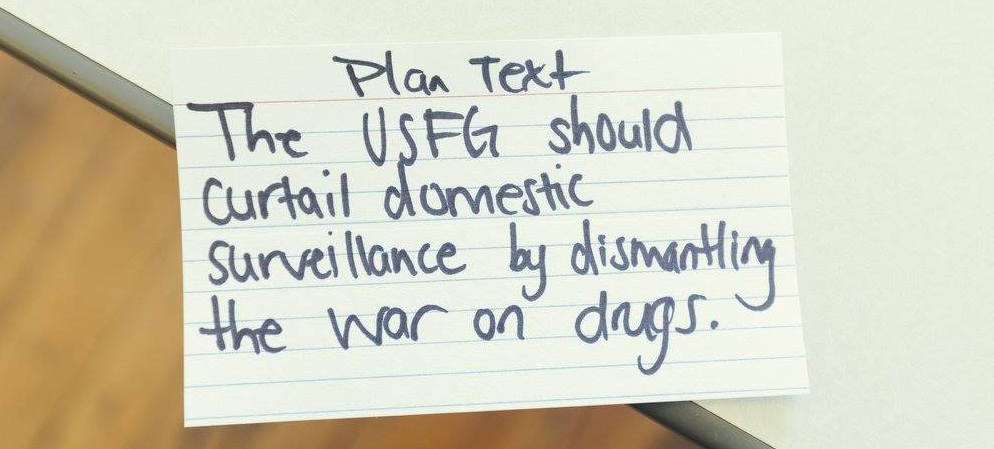 Plan Text
The USFG should
curtail domestic
surveillance by dismantling
the war on drugs.